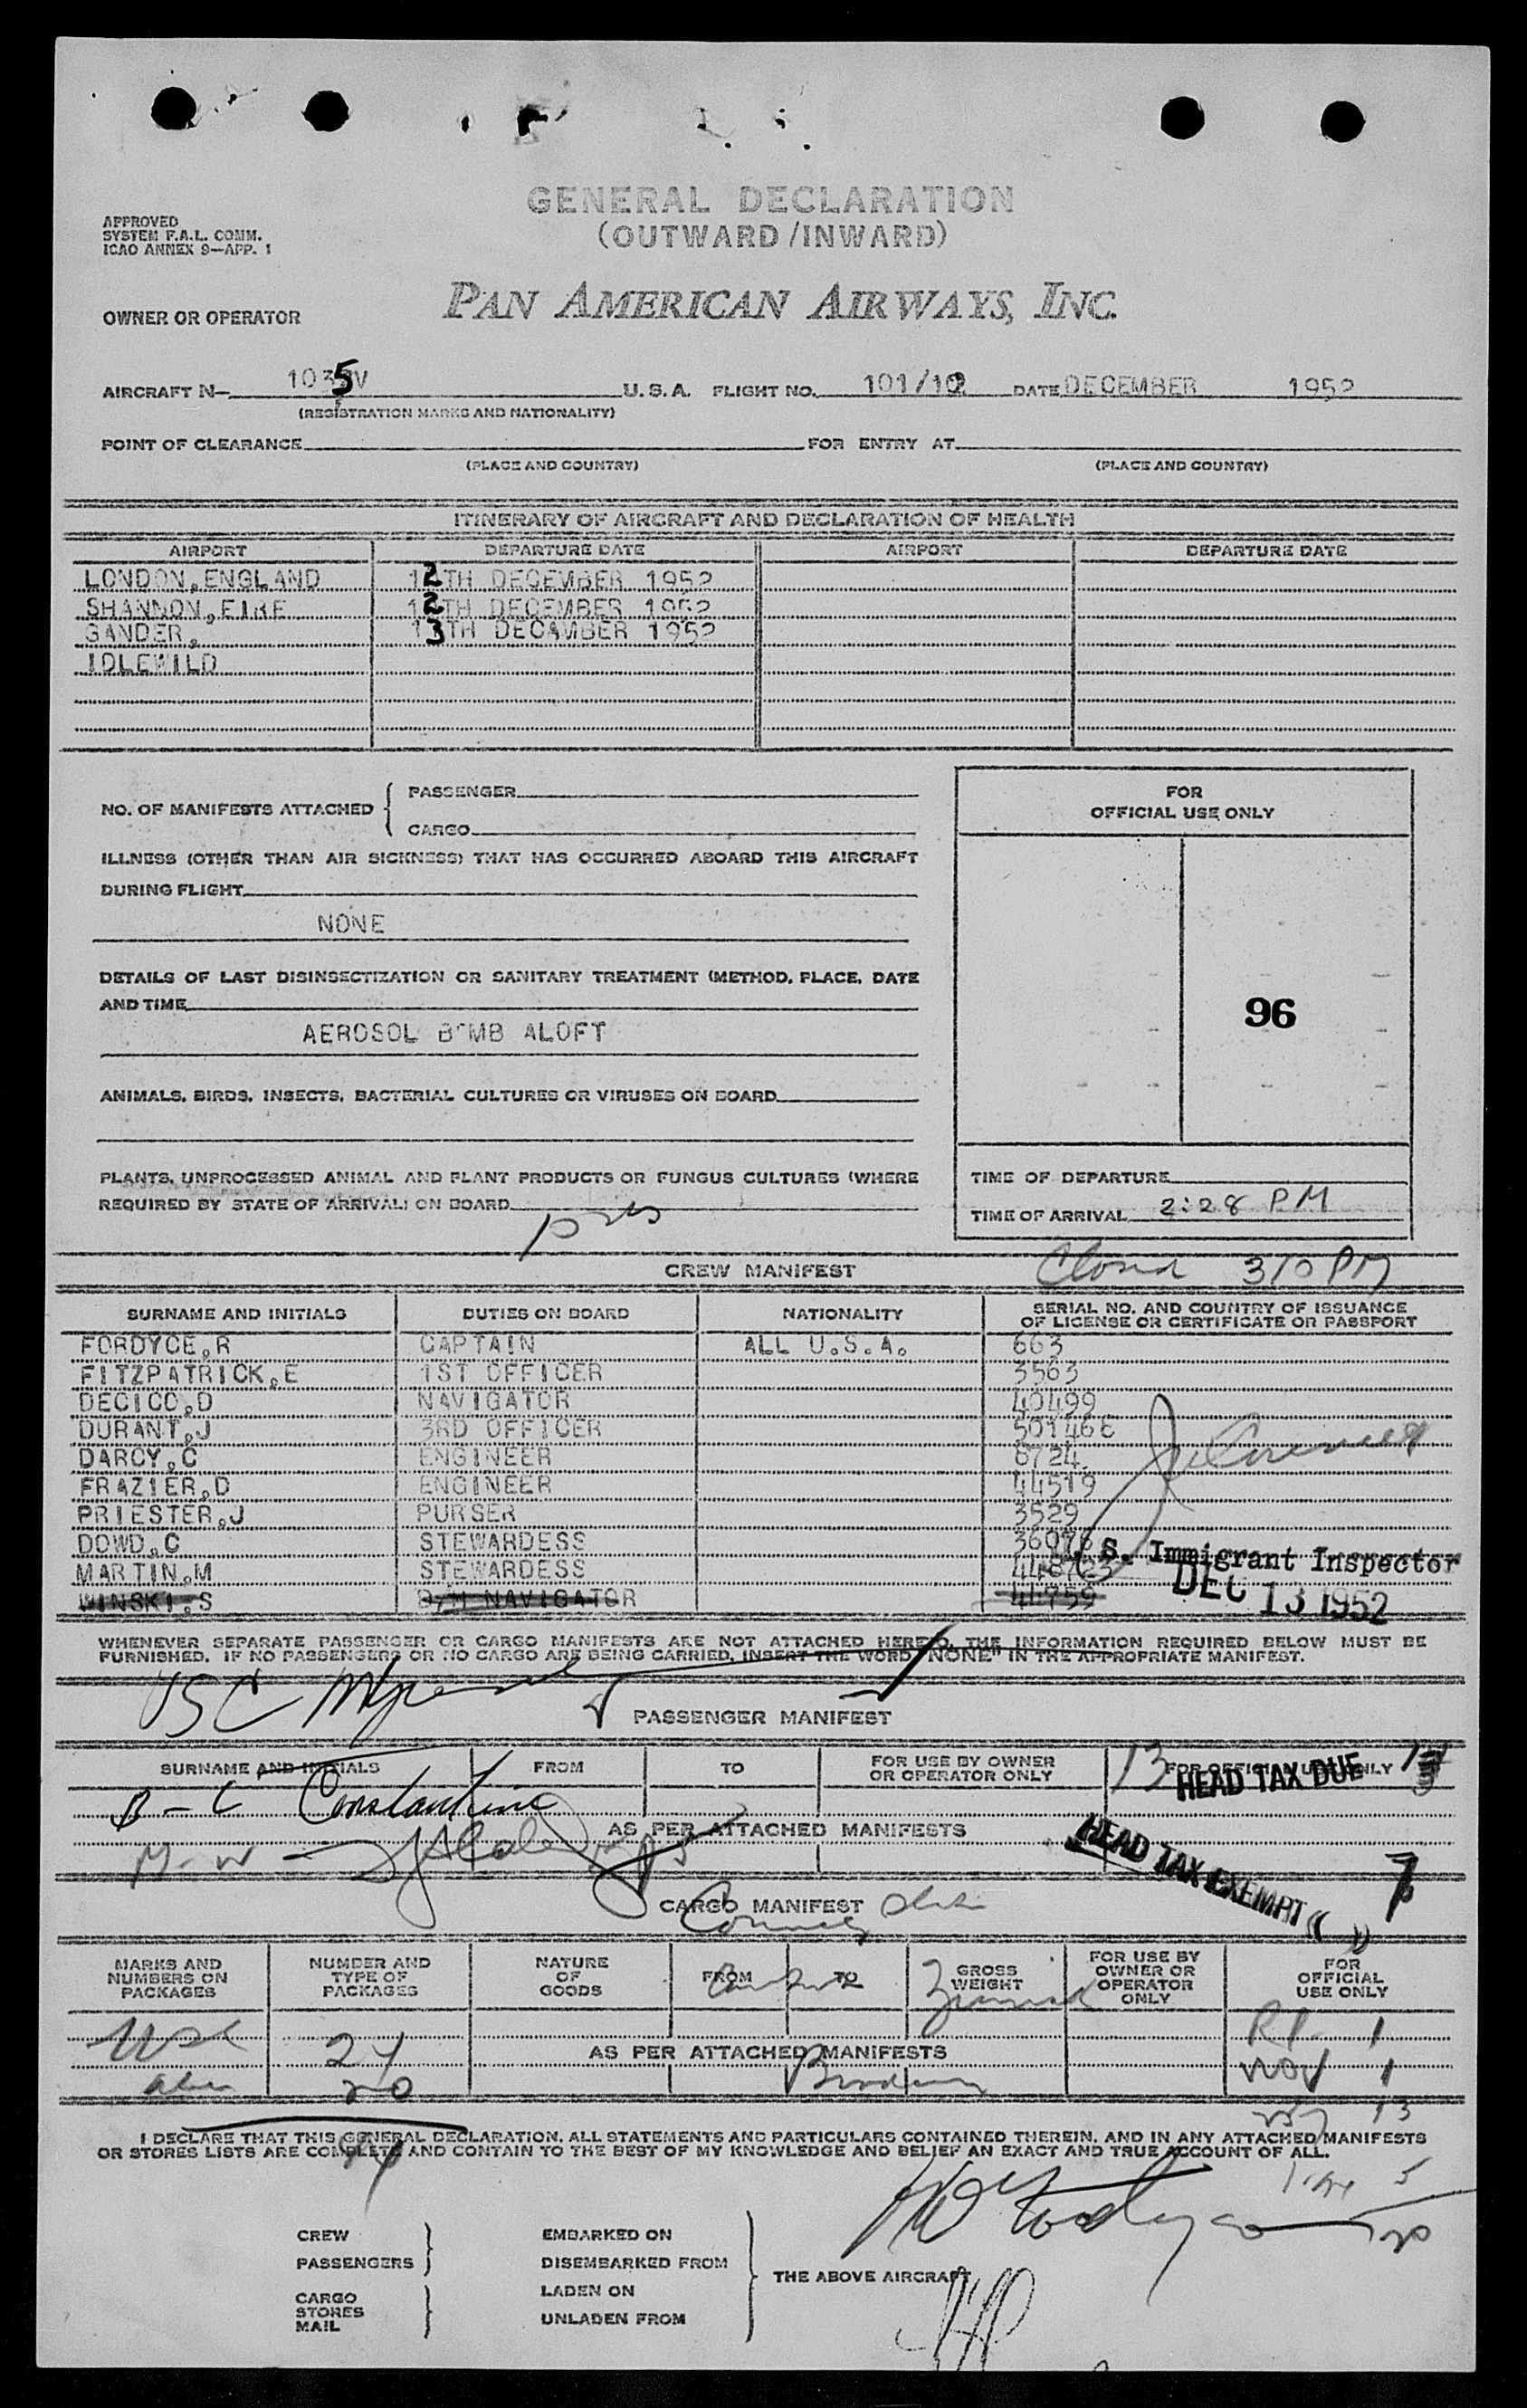 GENERAL DECLARATION
(OUTWARD/INWARD)
APPROVED
SYSTEM F.A.L. COMM.
ICAO ANNEX 9—APP. 1
OWNER OR OPERATOR PAN AMERICAN AIRWAYS, INC.
AIRCRAFT N— 1035V U.S.A. FLIGHT NO. 101/12 DATE DECEMBER 1952
(REGISTRATION MARKS AND NATIONALITY)
POINT OF CLEARANCE FOR ENTRY AT
(PLACE AND COUNTRY) (PLACE AND COUNTRY)
ITINERARY OF AIRCRAFT AND DECLARATION OF HEALTH
AIRPORT DEPARTURE DATE AIRPORT DEPARTURE DATE
LONDON,ENGLAND 12TH DECEMBER 1952
SHANNON,EIRE 12TH DECEMBER 1952
GANDER, 13TH DECAMBER 1952
IDLEWILD
NO. OF MANIFESTS ATTACHED { PASSENGER
CARGO
ILLNESS (OTHER THAN AIR SICKNESS) THAT HAS OCCURRED ABOARD THIS AIRCRAFT
DURING FLIGHT
NONE
DETAILS OF LAST DISINSECTIZATION OR SANITARY TREATMENT (METHOD, PLACE, DATE
AND TIME
AEROSOL B MB ALOFT
ANIMALS, BIRDS, INSECTS, BACTERIAL CULTURES OR VIRUSES ON BOARD
PLANTS, UNPROCESSED ANIMAL AND PLANT PRODUCTS OR FUNGUS CULTURES (WHERE
REQUIRED BY STATE OF ARRIVAL) ON BOARD
FOR
OFFICIAL USE ONLY
96
TIME OF DEPARTURE
TIME OF ARRIVAL 2:28 PM
310 PM
CREW MANIFEST
SURNAME AND INITIALS DUTIES ON BOARD NATIONALITY SERIAL NO. AND COUNTRY OF ISSUANCE
OF LICENSE OR CERTIFICATE OR PASSPORT
FORDYCE,R CAPTAIN ALL U.S.A. 663
FITZPATRICK,E 1ST OFFICER 3563
DECICO,D NAVIGATOR 40499
DURANT,J 3RD OFFICER 501468
DARCY,C ENGINEER 8724
FRAZIER,D ENGINEER 44519
PRIESTER,J PURSER 3529
DOWD,C STEWARDESS 36078
MARTIN,M STEWARDESS
WINSKI,S NAVIGATOR 44759
S. Immigrant Inspector
DEC 13 1952
WHENEVER SEPARATE PASSENGER OR CARGO MANIFESTS ARE NOT ATTACHED HERETO, THE INFORMATION REQUIRED BELOW MUST BE
FURNISHED. IF NO PASSENGERS OR NO CARGO ARE BEING CARRIED, INSERT THE WORD "NONE" IN THE APPROPRIATE MANIFEST.
PASSENGER MANIFEST
SURNAME AND INITIALS FROM TO FOR USE BY OWNER
OR OPERATOR ONLY FOR OFFICIAL USE ONLY
13 HEAD TAX DUE
B - C Constantine
AS PER ATTACHED MANIFESTS
M - W
HEAD TAX EXEMPT ( ) 7
CARGO MANIFEST
MARKS AND
NUMBERS ON
PACKAGES
NUMBER AND
TYPE OF
PACKAGES
NATURE
OF
GOODS
FROM TO
GROSS
WEIGHT
FOR USE BY
OWNER OR
OPERATOR
ONLY
FOR
OFFICIAL
USE ONLY
USC 24
AS PER ATTACHED MANIFESTS
20
I DECLARE THAT THIS GENERAL DECLARATION, ALL STATEMENTS AND PARTICULARS CONTAINED THEREIN, AND IN ANY ATTACHED MANIFESTS
OR STORES LISTS ARE COMPLETE AND CONTAIN TO THE BEST OF MY KNOWLEDGE AND BELIEF AN EXACT AND TRUE ACCOUNT OF ALL.
CREW
PASSENGERS
CARGO
STORES
MAIL
EMBARKED ON
DISEMBARKED FROM
LADEN ON
UNLADEN FROM
THE ABOVE AIRCRAFT